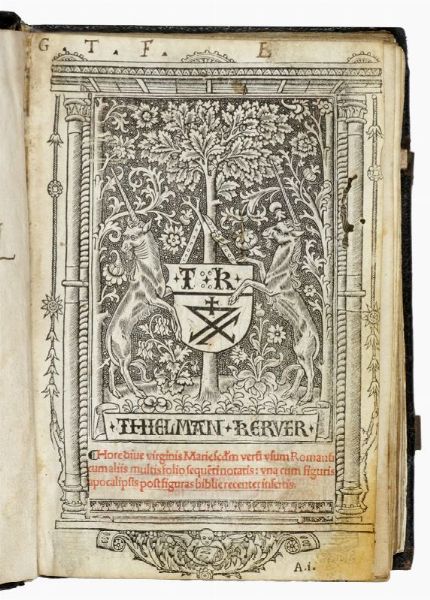 G T. F. E
T K
THIELMAN KERVER
Hore diue virginis Marie scd'm verū vsum Romanū
cum aliis multis folio sequēti notatis: vna cum figuris
apocalipsis post figuras biblie recenter insertis.
A.i.